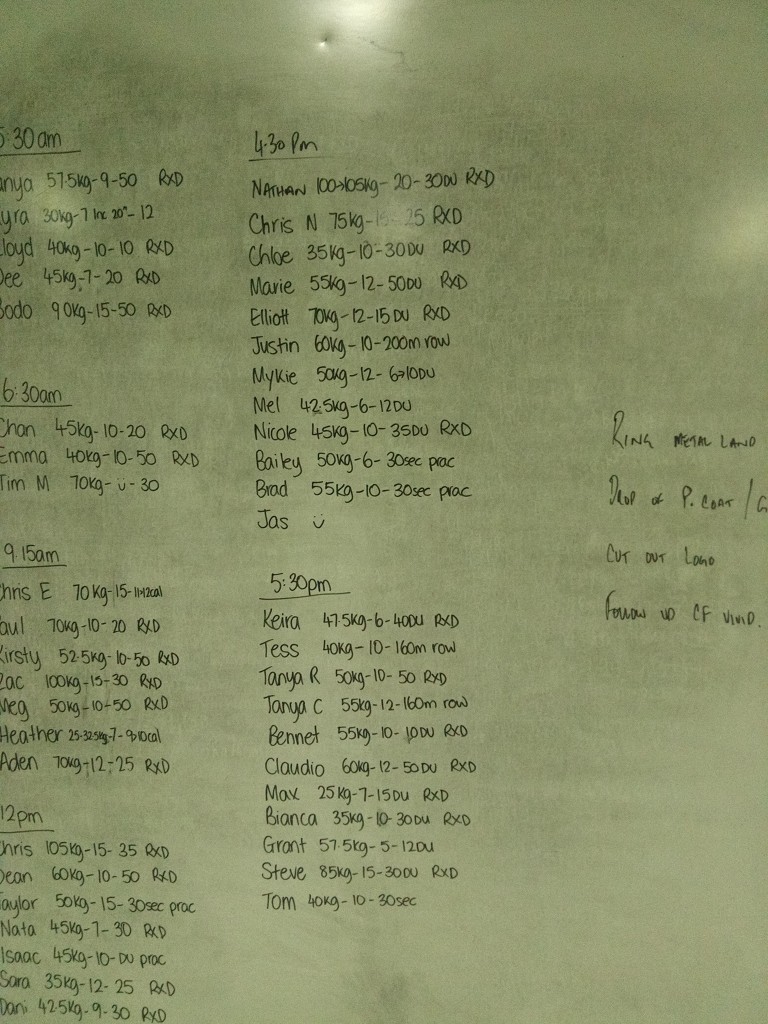 5:30am
anya 57.5kg-9-50 RXD
yra 30kg-7 inc 20"-12
loyd 40kg-10-10 RXD
Dee 45kg-7-20 RXD
Bodo 90kg-15-50 RXD
6:30am
Chan 45kg-10-20 RXD
Emma 40kg-10-50 RXD
Tim M 70kg- ü -30
9.15am
Chris E 70kg-15-11>12cal
aul 70kg-10-20 RXD
Kirsty 52.5kg-10-50 RXD
Zac 100kg-15-30 RXD
Meg 50kg-10-50 RXD
Heather 25-32.5kg-7-9>10cal
Aden 70kg-12-25 RXD
12pm
Chris 105kg-15-35 RXD
Dean 60kg-10-50 RXD
Taylor 50kg-15-30sec prac
Nata 45kg-7-30 RXD
Isaac 45kg-10-DU prac
Sara 35kg-12-25 RXD
Dani 42.5kg-9-30 RXD
4.30 Pm
NATHAN 100>105kg-20-30DU RXD
Chris N 75kg-15-25 RXD
Chloe 35kg-10-30DU RXD
Marie 55kg-12-50DU RXD
Elliott 70kg-12-15DU RXD
Justin 60kg-10-200m row
Mykie 50kg-12-6>10DU
Mel 42.5kg-6-12DU
Nicole 45kg-10-35DU RXD
Bailey 50kg-6-30sec prac
Brad 55kg-10-30sec prac
Jas ü
5:30pm
Keira 47.5kg-6-40DU RXD
Tess 40kg-10-160m row
Tanya R 50kg-10-50 RXD
Tanya C 55kg-12-160m row
Bennet 55kg-10-10DU RXD
Claudio 60kg-12-50DU RXD
Max 25kg-7-15DU RXD
Bianca 35kg-10-30DU RXD
Grant 57.5kg-5-12DU
Steve 85kg-15-30DU RXD
Tom 40kg-10-30sec
RING METAL LAND
DROP OF P. COAT / G
CUT OUT LOGO
FOLLOW UP CF VIVID.